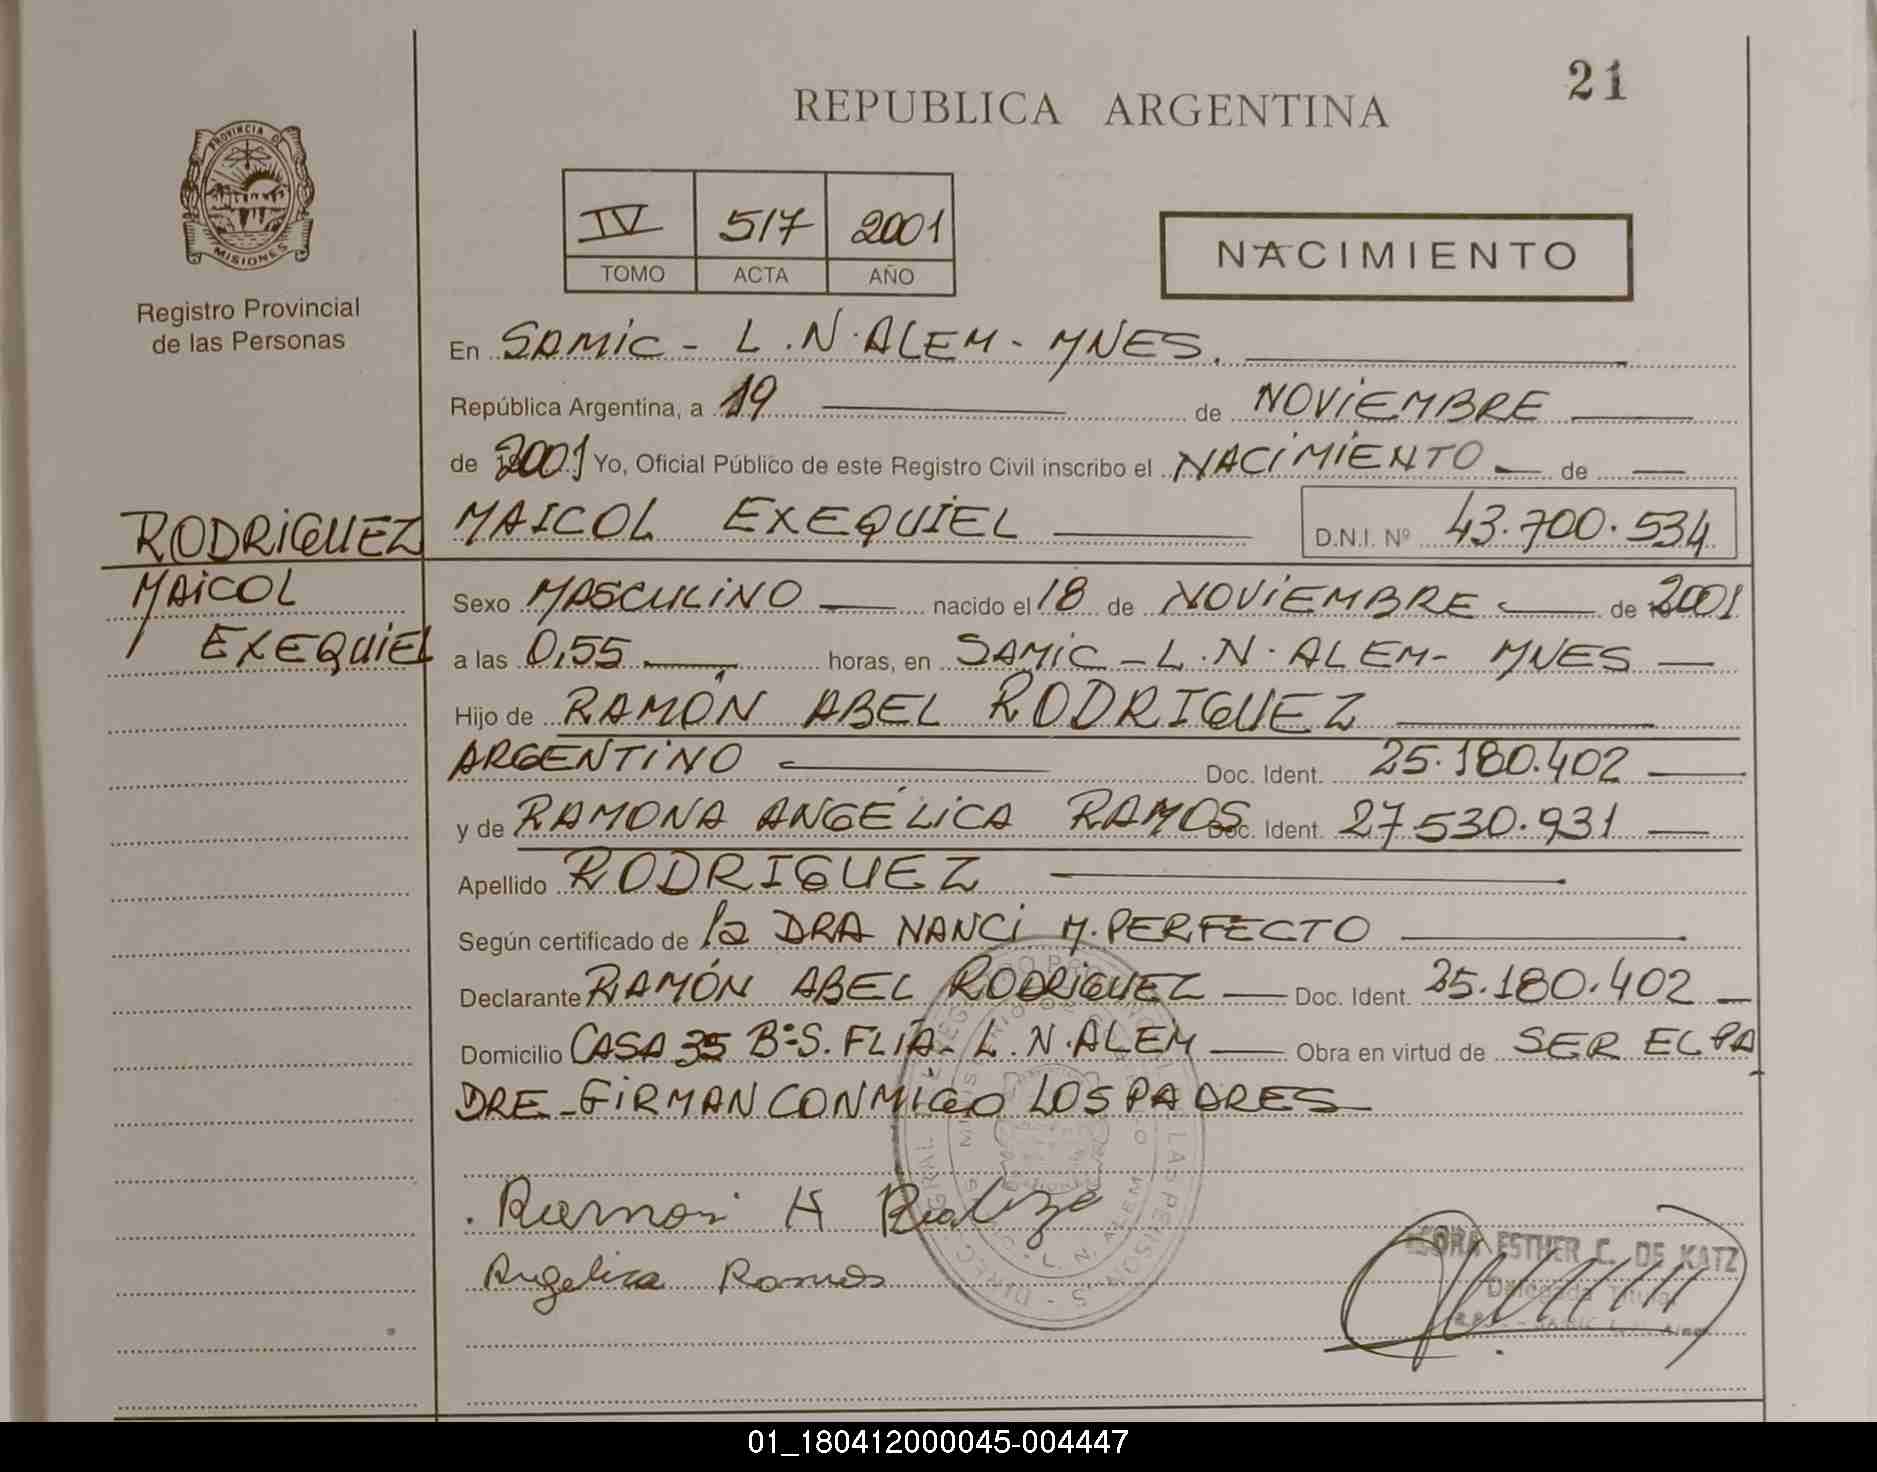 21
REPUBLICA ARGENTINA
PROVINCIA DE
MISIONES
Registro Provincial
de las Personas
IV 517 2001
TOMO ACTA AÑO
NACIMIENTO
En SAMIC - L.N. ALEM - MNES.
República Argentina, a 19 de NOVIEMBRE
de 2001 Yo, Oficial Público de este Registro Civil inscribo el NACIMIENTO de
RODRIGUEZ MAICOL EXEQUIEL D.N.I. Nº 43.700.534
MAICOL
EXEQUIEL
Sexo MASCULINO nacido el 18 de NOVIEMBRE de 2001
a las 0,55 horas, en SAMIC - L.N. ALEM - MNES
Hijo de RAMÓN ABEL RODRIGUEZ
ARGENTINO Doc. Ident. 25.180.402
y de RAMONA ANGÉLICA RAMOS Doc. Ident. 27.530.931
Apellido RODRIGUEZ
Según certificado de la DRA NANCI M. PERFECTO
Declarante RAMÓN ABEL RODRIGUEZ Doc. Ident. 25.180.402
Domicilio CASA 35 Bº S. FLIA - L.N. ALEM Obra en virtud de SER EL PA
DRE - FIRMAN CONMIGO LOS PADRES
Ramon A
Angelica Ramos
ESTHER C. DE KATZ
Delegada Titular
01_180412000045-004447